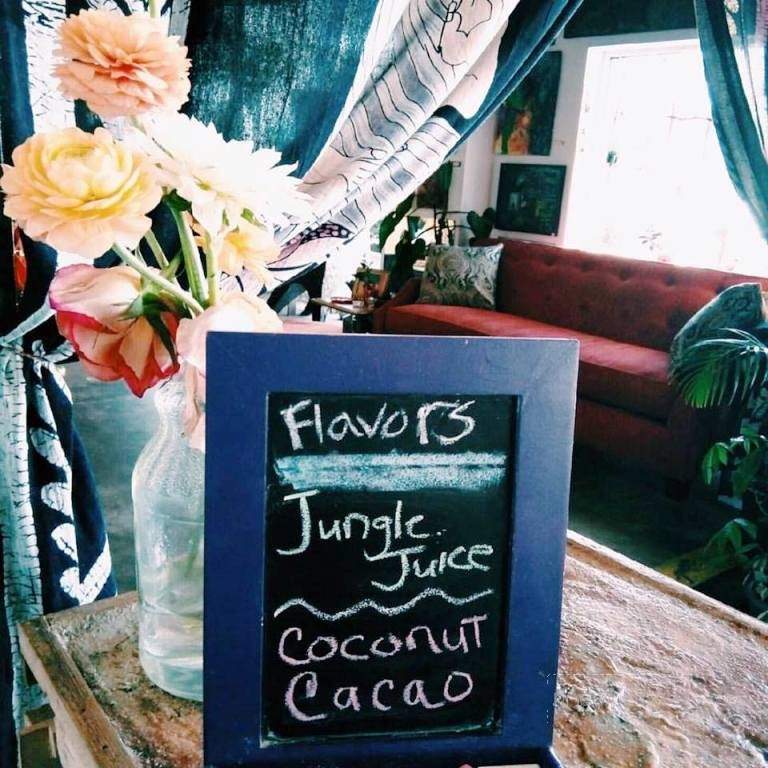 Flavors
Jungle
Juice
Coconut
Cacao